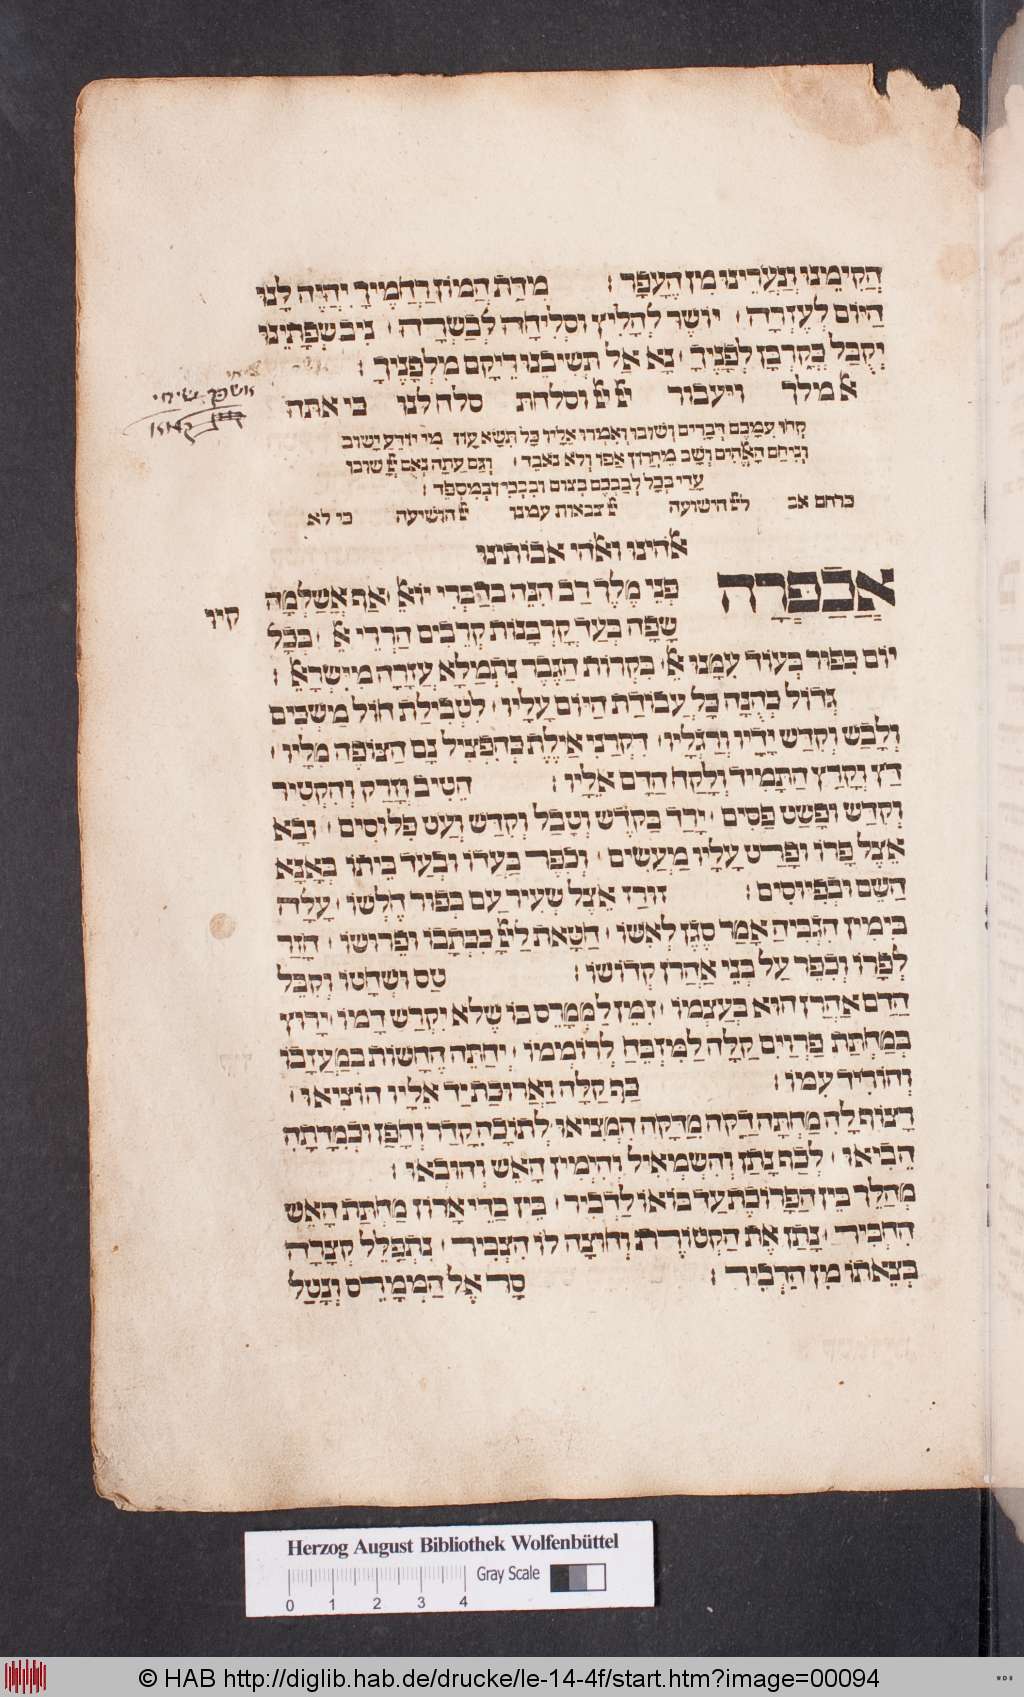 הֲקִימֵינוּ וְנַעֲרֵינוּ מִן הֶעָפָר : מִדַּת הֲמוֹן רַחֲמֶיךָ יִהְיֶה לָנוּ
הַיּוֹם לְעֶזְרָה : יוֹשֶׁר לְהָלִיץ וּסְלִיחָה לְבַשְּׂרָה : נִיב שְׂפָתֵינוּ
יְקֻבַּל כְּקָרְבָּן לְפָנֶיךָ : נָא אַל תְּשִׁיבֵנוּ רֵיקָם מִלְּפָנֶיךָ :
אל מלך ויעבור יי יי וסלחת סלח לנו כי אתה
קְחוּ עִמָּכֶם דְּבָרִים וְשׁוּבוּ וְאִמְרוּ אֵלָיו כָּל תִּשָּׂא עָוֹן מִי יוֹדֵעַ יָשׁוּב
וְנִיחַם הָאֱלֹהִים וְשָׁב מֵחֲרוֹן אַפּוֹ וְלֹא נֹאבֵד : וְגַם עַתָּה נְאֻם יְיָ שׁוּבוּ
עָדַי בְּכָל לְבַבְכֶם בְּצוֹם וּבִבְכִי וּבְמִסְפֵּד :
כרחם אב ליי הישועה יי צבאות עמנו יי הושיעה כי לא
אלהינו ואלהי אבותינו
אֲכַפְּרָה פְּנֵי מֶלֶךְ רַב הִנֵּה בְּהַכְבָּדִי יוֹאֶל : אַף אֲשַׁלְּמָה
קיו
שָׂפָה בְּעַד קָרְבָּנוֹת קְרֵבִים הַרְרֵי אֵל : בְּכָל
יוֹם כִּפּוּר בְּעוֹד עִמָּנוּ אֵל : בִּקְרוֹת הַגֶּבֶר נִתְמַלֵּא עֲזָרָה מִיִּשְׂרָאֵל :
גָּדוֹל בְּהֻנָּה כָּל עֲבוֹדַת הַיּוֹם עָלָיו : לִטְבִילַת חוֹל מַשְׁכִּים
וְלָבַשׁ וְקִדַּשׁ יָדָיו וְרַגְלָיו : דְּקַרְנֵי אַיֶּלֶת בְּהַפְצִיל נָם הַצּוֹפֶה מִלָּיו :
רָץ וְקָרַץ הַתָּמִיד וְלָקַח הַדָּם אֵלָיו : הֵטִיב וְזָרַק וְהִקְטִיר
וְקִדַּשׁ וּפָשַׁט פַּסִּים : יָרַד בַּקֹּדֶשׁ וְטָבַל וְקִדַּשׁ וְעָט פִּלּוּסִים : וּבָא
אֵצֶל פָּרוֹ וּפָרַט עָלָיו מַעֲשִׂים : וְכִפֶּר בַּעֲדוֹ וּבְעַד בֵּיתוֹ בְּאָנָּא
הַשֵּׁם וּבְפִיּוּסִים : זוֹרַז אֵצֶל שְׂעִיר עַם בְּפוּר הֶלְשׁוֹ : עָלָה
בְיָמִין הִגְבִּיהַּ אָמַר סְגָן לְאִשּׁוֹ : חַטָּאת לַיְיָ כִּכְתָבוֹ וּפֵרוּשׁוֹ : חָזַר
לְפָרוֹ וְכִפֶּר עַל בְּנֵי אַהֲרֹן קְדוֹשׁוֹ : טָס וּשְׁחָטוֹ וְקִבֵּל
הַדָּם אַהֲרֹן הוּא בְּעַצְמוֹ : זִמֵּן לַמְמָרֵס בּוֹ שֶׁלֹּא יִקְרַשׁ דָּמוֹ : יָרוּץ
בְּמַחְתַּת פַּרְוַיִם קַלָּה לַמִּזְבֵּחַ לְרוֹמְמוֹ : יְחַתֶּה הֶחָשׁוֹת בְּמַעֲזָבוֹ
וְהוֹרִיד עִמּוֹ : כַּף קַלָּה וַאֲרוּכַּת יָד אֵלָיו הוֹצִיאוּ :
רָצוּף לָהּ מַחְתָּה דַקָּה מִדַּקָּה הִמְצִיאוּ : לְתוֹכָהּ קָדַר וְחָפַן וּבְמִדָּתָהּ
הֵבִיאוּ : לְכַף נָתַן וְהִשְׂמְאִיל וְהֵימִין הָאֵשׁ וְהוּבָאוּ :
מְהַלֵּךְ בֵּין הַפָּרוֹכֶת עַד בּוֹאוֹ לַדְּבִיר : בֵּין בַּדֵּי אָרוֹן מַחְתַּת הָאֵשׁ
הִכְבִּיר : נָתַן אֶת הַקְּטוֹרֶת וְחוּצָה לוֹ הִצְבִּיר : נִתְפַּלֵּל קְצָרָה
בְּצֵאתוֹ מִן הַדְּבִיר : סָר אֶל הַמְמָרֵס וְנָטַל
Herzog August Bibliothek Wolfenbüttel
0 1 2 3 4 Gray Scale
© HAB http://diglib.hab.de/drucke/le-14-4f/start.htm?image=00094